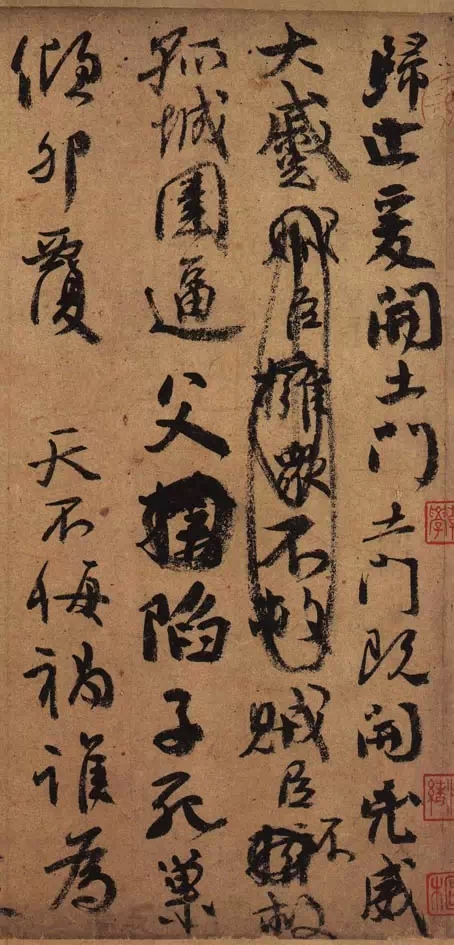 歸止爰開土門土門既開兇威
大蹙賊臣擁眾不救賊臣不救
孤城圍逼父陷子死巢
傾卵覆天不悔禍誰為